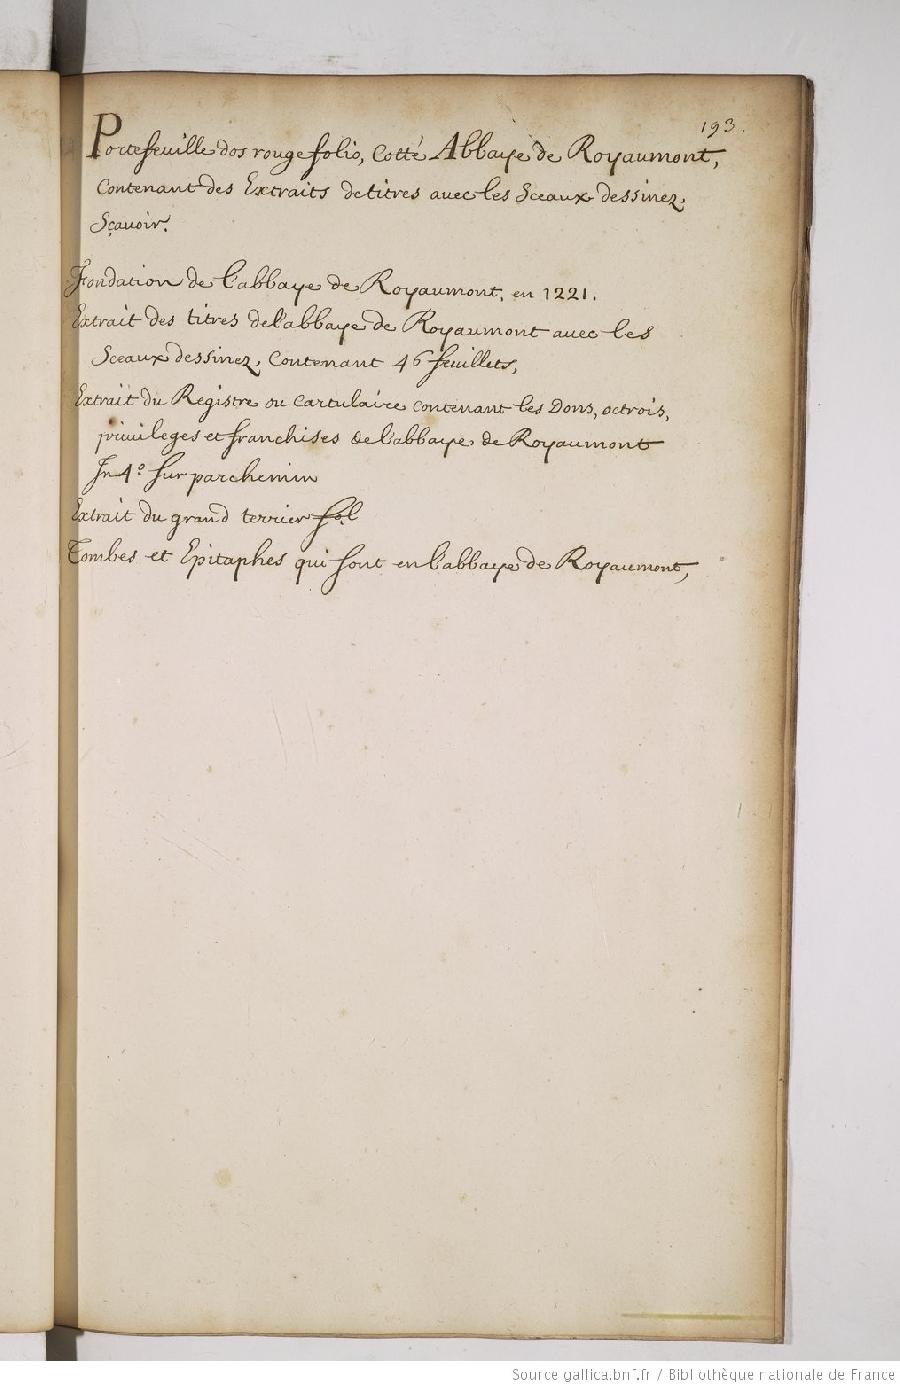 193.
Portefeuille dos rouge folio, Cotté Abbaye de Royaumont,
Contenant des Extraits de titres avec les Sceaux dessinez,
Sçauoir.
Fondation de l'abbaye de Royaumont, en 1221.
Extrait des titres de l'abbaye de Royaumont avec les
Sceaux dessinez, Contenant 46 feuillets,
Extrait du Registre ou Cartulaire contenant les Dons, octrois,
priuileges et franchises de l'abbaye de Royaumont
In 4º sur parchemin
Extrait du grand terrier fol
Tombes et Epitaphes qui sont en l'abbaye de Royaumont,
Source gallica.bnf.fr / Bibliothèque nationale de France